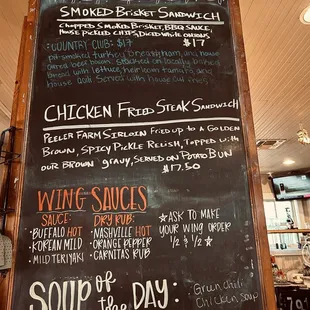 Smoked Brisket Sandwich
Chopped Smoked Brisket, BBQ Sauce,
House Pickled Chips, Diced White Onions
$17
Country Club: $17
pit-smoked turkey, and house
bacon, stacked on locally
bread with lettuce, heirloom tomato, and
house aoli. Served with house cut fries
Chicken Fried Steak Sandwich
Peeler Farm Sirloin Fried up to a Golden
Brown, Spicy Pickle Relish, Topped with
our Brown gravy, Served on Potato Bun
$17.50
Wing Sauces
Sauce:
• Buffalo Hot
• Korean Mild
• Mild Teriyaki
Dry Rub:
• Nashville Hot
• Orange Pepper
• Carnitas Rub
★ Ask to make
your wing order
½ & ½ ★
Soup of the Day:
Green Chili
Chicken Soup